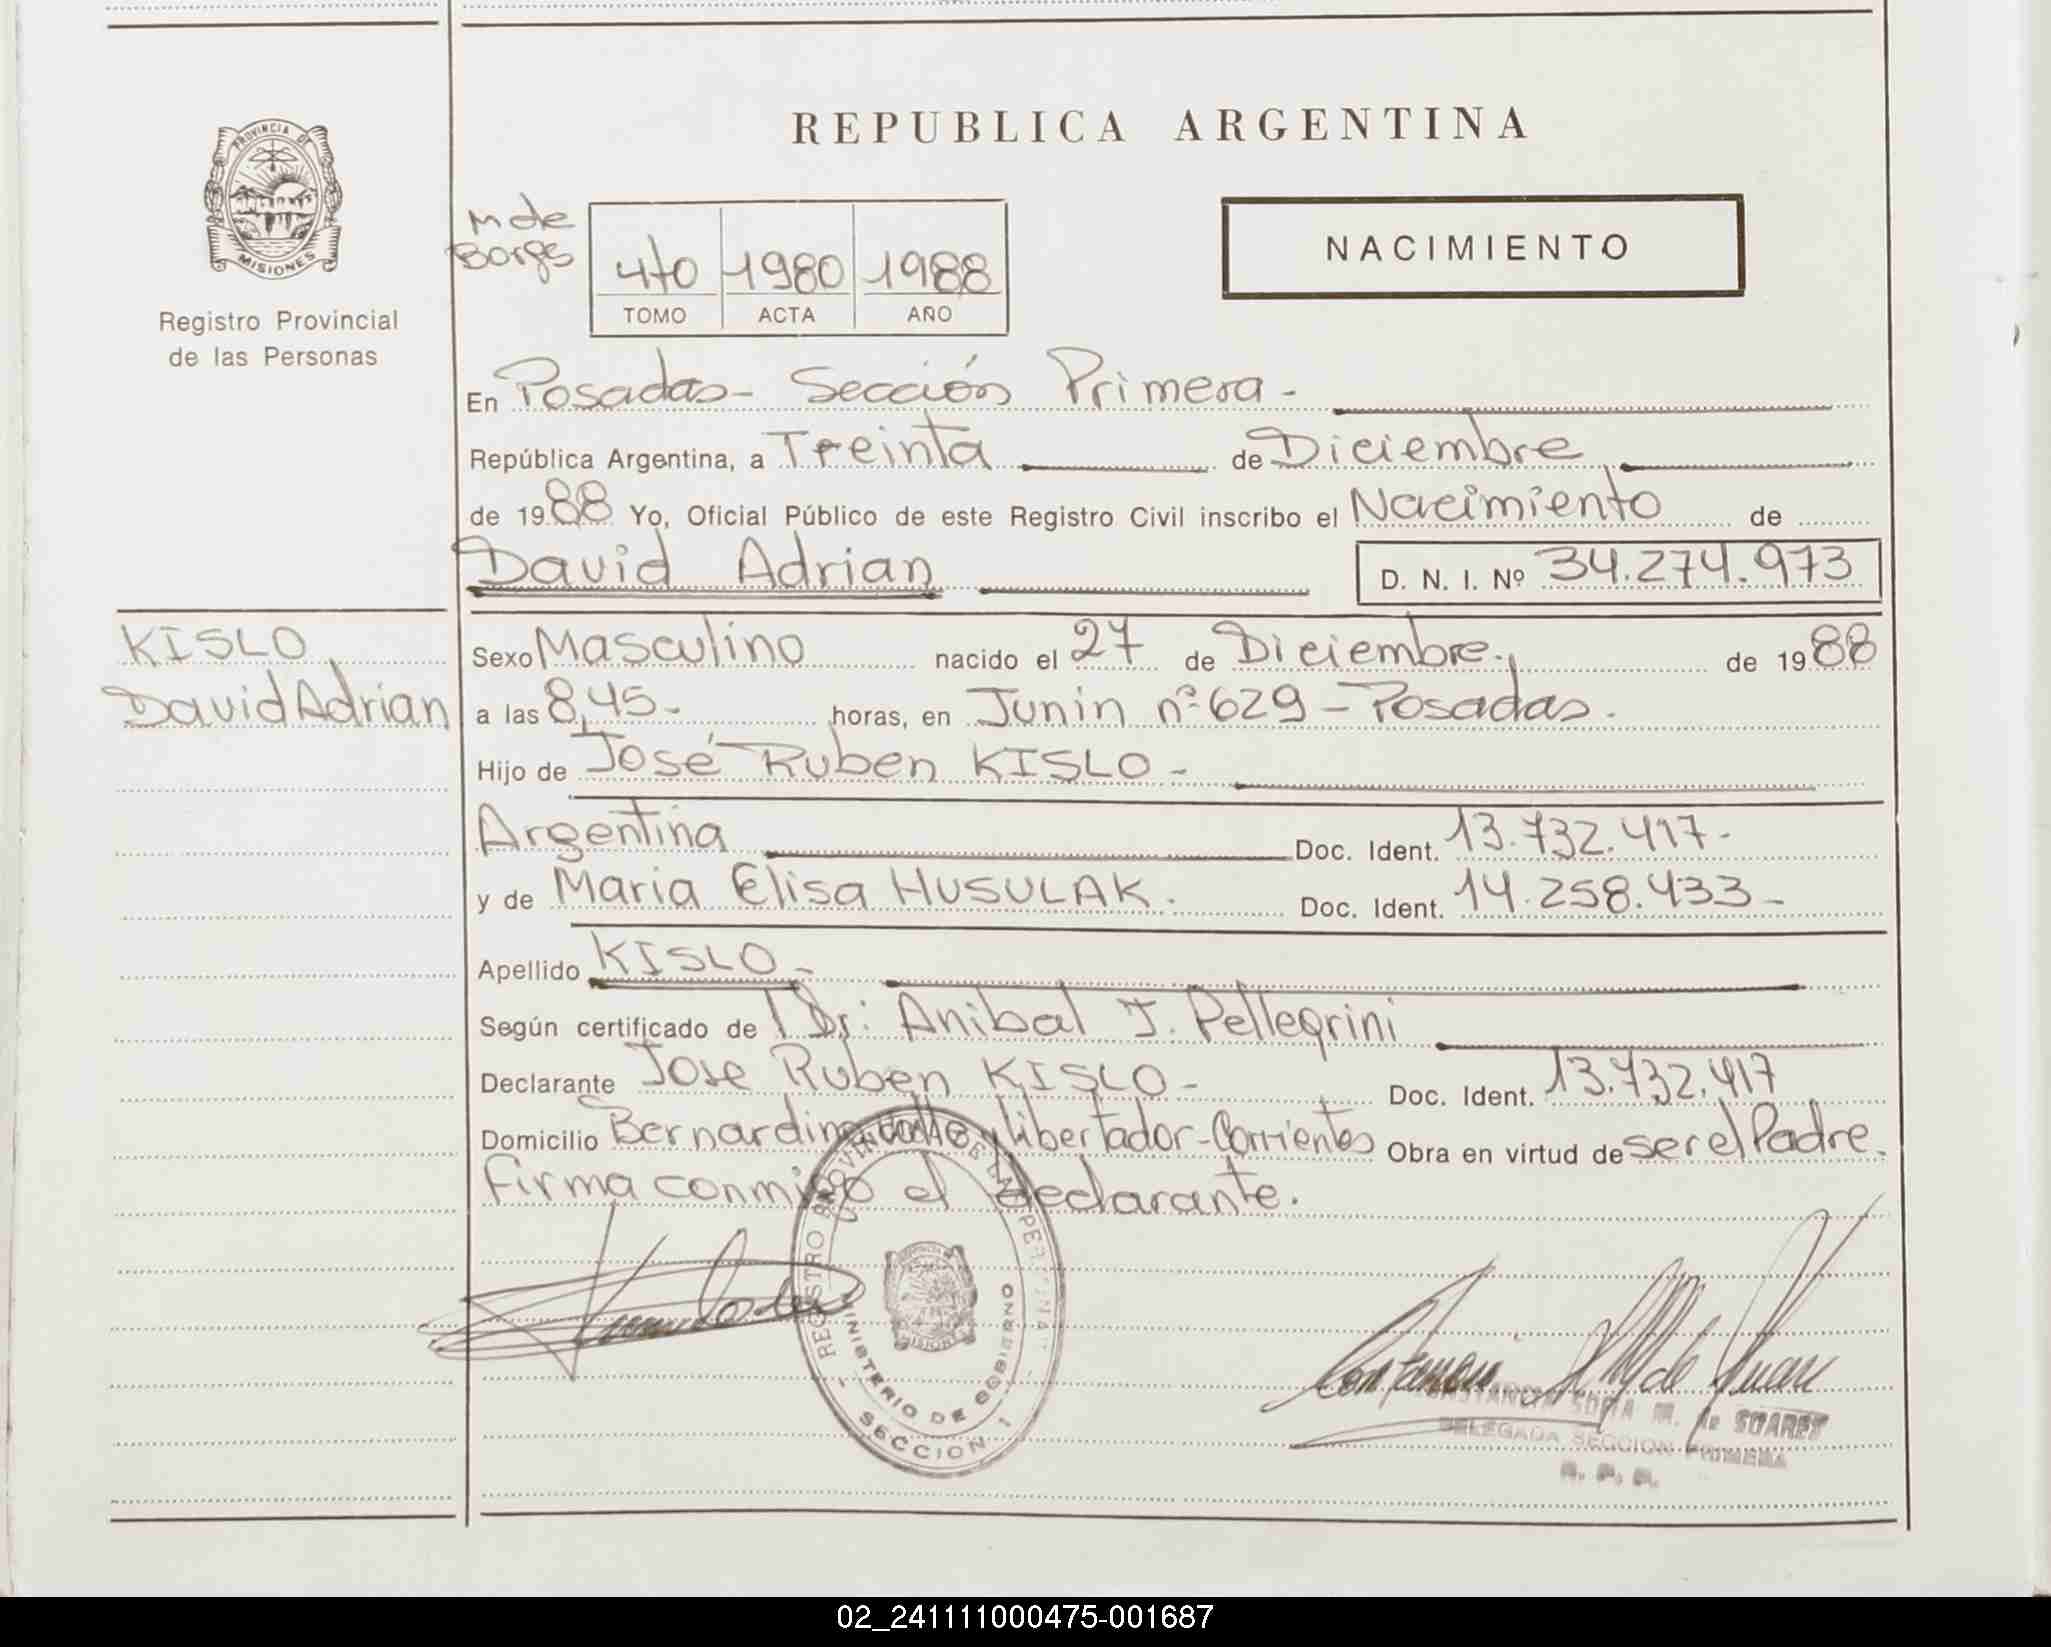 PROVINCIA DE
MISIONES
Registro Provincial
de las Personas
REPUBLICA ARGENTINA
M de
Borges
4to 1980 1988
TOMO ACTA AÑO
NACIMIENTO
En Posadas- Sección Primera-
República Argentina, a Treinta de Diciembre
de 1988 Yo, Oficial Público de este Registro Civil inscribo el Nacimiento de
David Adrian D. N. I. Nº 34.274.973
KISLO
David Adrian
Sexo Masculino nacido el 27 de Diciembre. de 1988
a las 8,45- horas, en Junin nº 629 - Posadas.
Hijo de José Ruben KISLO -
Argentina Doc. Ident. 13.732.417-
y de Maria Elisa HUSULAK. Doc. Ident. 14.258.433-
Apellido KISLO -
Según certificado de Dr: Anibal J. Pellegrini
Declarante Jose Ruben KISLO- Doc. Ident. 13.732.417
Domicilio Bernardino y libertador-Corrientes Obra en virtud de ser el Padre.
Firma conmigo el declarante.
REGISTRO PROVINCIAL DE LAS PERSONAS
MINISTERIO DE GOBIERNO
- SECCION 1 -
MISIONES
CONSTANCIA SOFIA M. de SUAREZ
DELEGADA SECCION PRIMERA
R. P. P.
02_241111000475-001687